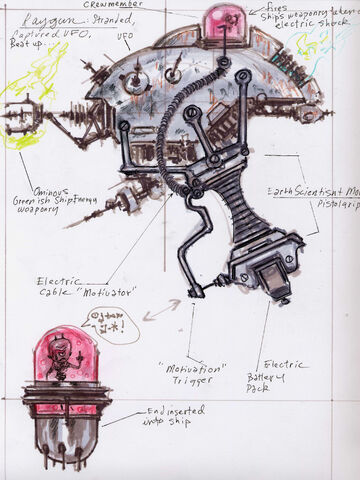 Crewmember
Raygun: Stranded,
Captured UFO,
Beat up...
UFO
Fires
Ship's weaponry
electric shock
Ominous
Greenish Ship Energy
weaponry
Earth Scientisnt
Pistolgrip
Electric
Cable "Motivator"
"Motivation"
Trigger
Electric
Battery
Pack
End inserted
into ship